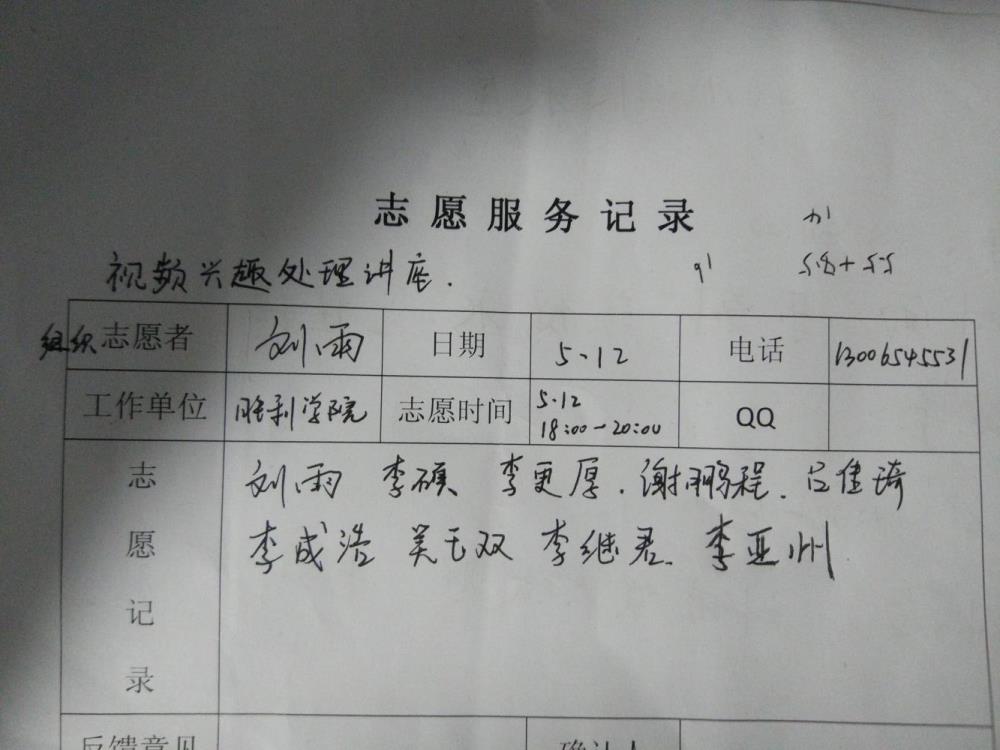 志愿服务记录
5.8+5.5
视频兴趣处理讲座.
组织志愿者 刘雨 日期 5.12 电话 13006545531
工作单位 胜利学院 志愿时间 5.12 18:00-20:00 QQ
志愿记录
刘雨 李硕 李更厚. 谢鹏程. 吕佳琦
李成浩 吴玉双 李继君. 李亚州
反馈意见 确认人